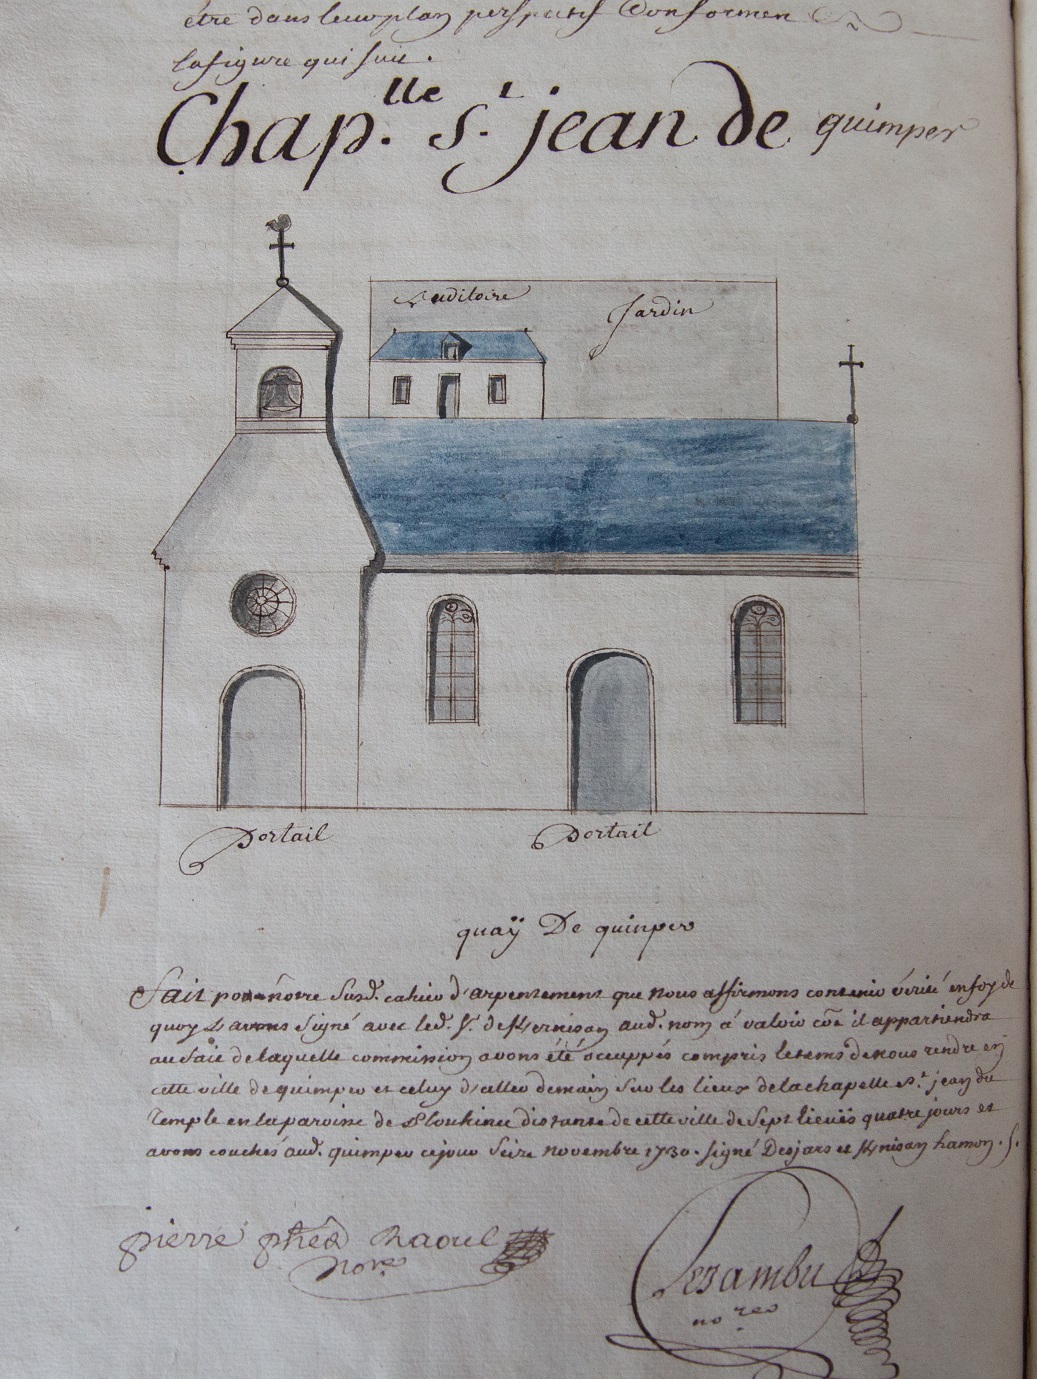 être dans leur plan perspectif Conformen
la figure qui suit.
Chap.lle S.t jean de quimper
auditoire
Jardin
Portail
Portail
quaÿ De quimper
Fait notre Susd. cahier d'arpentement que nous affirmons contenir vérité en foy de
quoy L'avons Signé avec led. S. de Kernisan aud. nom à valoir il appartiendra
au Saie de laquelle commission avons été occuppés compris le tems de nous rendre en
cette ville de quimper et celuy d'aller demain Sur les lieux de la chapelle S.t jean du
Temple en la paroisse de Plouhinec distante de cette ville de Sept lieuës quatre jours et
avons couchés aud. quimper ce jour Seize novembre 1730. Signé Desjars et Knisan hamon. S.
pierre Raoul
nore
Lezambu
no res